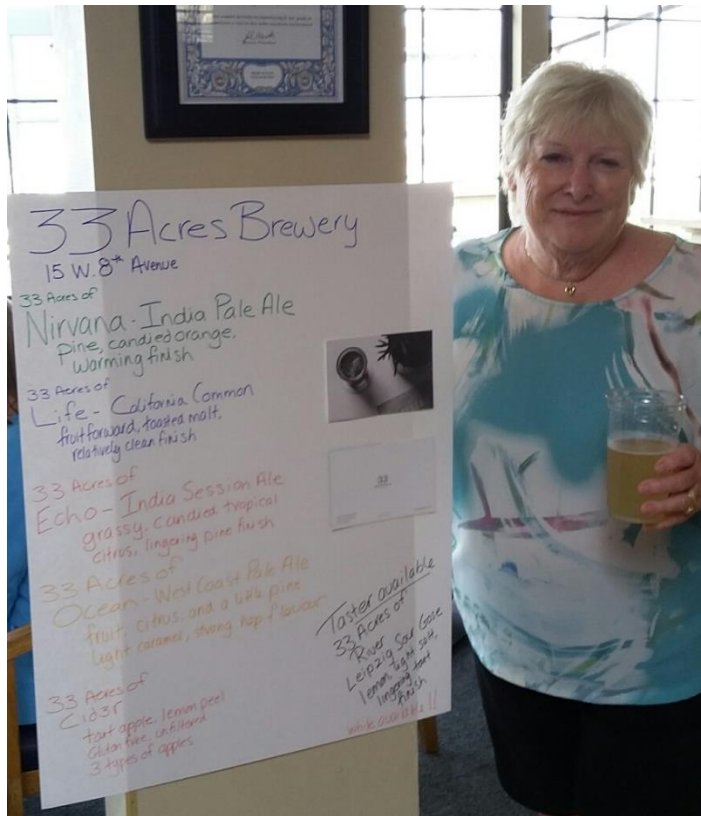 33 Acres Brewery
15 W. 8th Avenue
33 Acres of
Nirvana - India Pale Ale
pine, candied orange,
warming finish
33 Acres of
Life - California Common
fruit forward, toasted malt,
relatively clean finish
33 Acres of
Echo - India Session Ale
grassy, candied tropical
citrus, lingering pine finish
33 Acres of
Ocean - West Coast Pale Ale
fruit, citrus and a little pine
light caramel, strong hop flavour
33 Acres of
Cid3r
tart apple, lemon peel
Gluten free, unfiltered
3 types of apples
Taster available
33 Acres of
River
Leipzig Sour Gose
lemon, light salt,
lingering tart
finish
while available!!